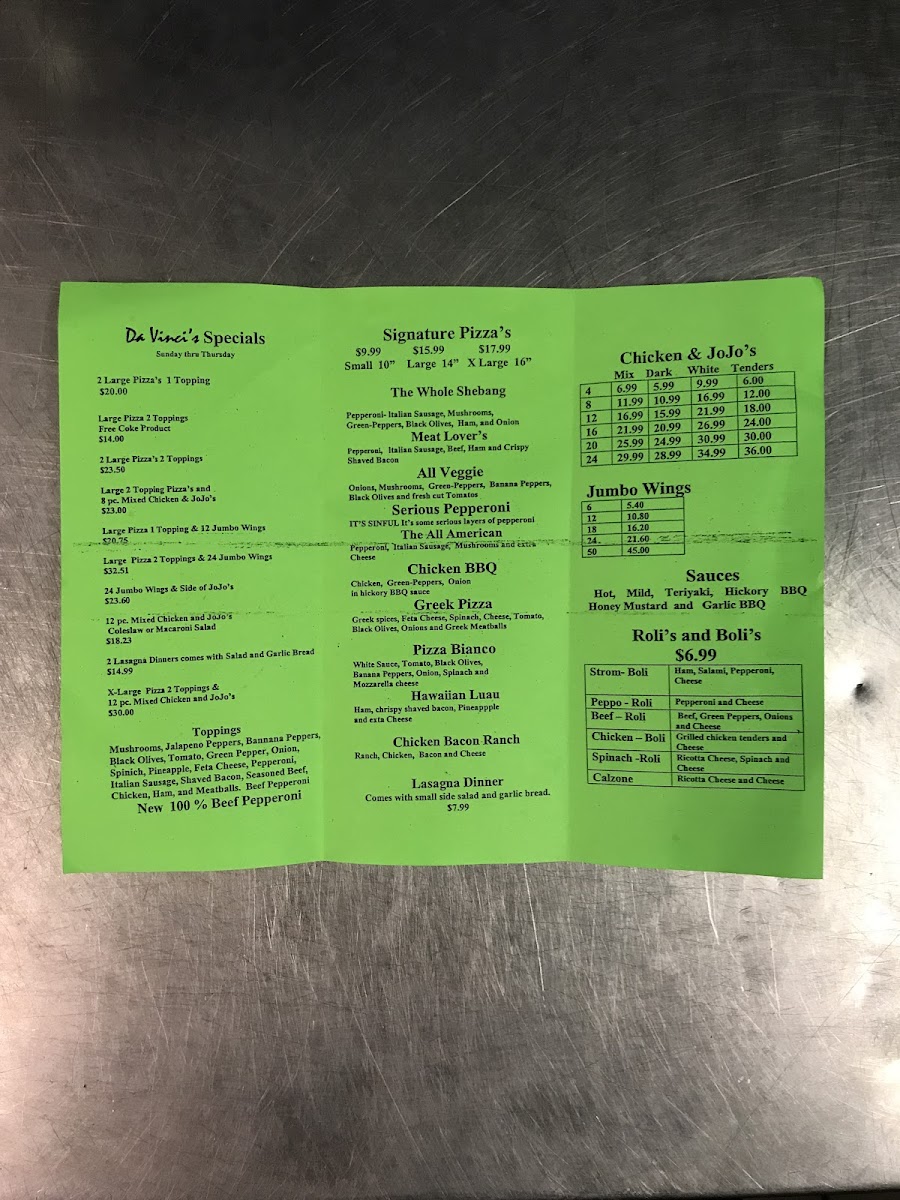 Da Vinci's Specials
Sunday thru Thursday
2 Large Pizza's 1 Topping
$20.00
Large Pizza 2 Toppings
Free Coke Product
$14.00
2 Large Pizza's 2 Toppings
$23.50
Large 2 Topping Pizza's and
8 pc. Mixed Chicken & JoJo's
$23.00
Large Pizza 1 Topping & 12 Jumbo Wings
$20.75
Large Pizza 2 Toppings & 24 Jumbo Wings
$32.51
24 Jumbo Wings & Side of JoJo's
$23.60
12 pc. Mixed Chicken and JoJo's
Coleslaw or Macaroni Salad
$18.23
2 Lasagna Dinners comes with Salad and Garlic Bread
$14.99
X-Large Pizza 2 Toppings &
12 pc. Mixed Chicken and JoJo's
$30.00
Toppings
Mushrooms, Jalapeno Peppers, Bannana Peppers,
Black Olives, Tomato, Green Pepper, Onion,
Spinich, Pineapple, Feta Cheese, Pepperoni,
Italian Sausage, Shaved Bacon, Seasoned Beef,
Chicken, Ham, and Meatballs. Beef Pepperoni
New 100 % Beef Pepperoni
Signature Pizza's
$9.99 $15.99 $17.99
Small 10" Large 14" X Large 16"
The Whole Shebang
Pepperoni- Italian Sausage, Mushrooms,
Green-Peppers, Black Olives, Ham, and Onion
Meat Lover's
Pepperoni, Italian Sausage, Beef, Ham and Crispy
Shaved Bacon
All Veggie
Onions, Mushrooms, Green-Peppers, Banana Peppers,
Black Olives and fresh cut Tomatos
Serious Pepperoni
IT'S SINFUL It's some serious layers of pepperoni
The All American
Pepperoni, Italian Sausage, Mushrooms and extra
Cheese
Chicken BBQ
Chicken, Green-Peppers, Onion
in hickory BBQ sauce
Greek Pizza
Greek spices, Feta Cheese, Spinach, Cheese, Tomato,
Black Olives, Onions and Greek Meatballs
Pizza Bianco
White Sauce, Tomato, Black Olives,
Banana Peppers, Onion, Spinach and
Mozzarella cheese
Hawaiian Luau
Ham, chrispy shaved bacon, Pineappple
and exta Cheese
Chicken Bacon Ranch
Ranch, Chicken, Bacon and Cheese
Lasagna Dinner
Comes with small side salad and garlic bread.
$7.99
Chicken & JoJo's
Mix Dark White Tenders
4 6.99 5.99 9.99 6.00
8 11.99 10.99 16.99 12.00
12 16.99 15.99 21.99 18.00
16 21.99 20.99 26.99 24.00
20 25.99 24.99 30.99 30.00
24 29.99 28.99 34.99 36.00
Jumbo Wings
6 5.40
12 10.80
18 16.20
24 21.60
50 45.00
Sauces
Hot, Mild, Teriyaki, Hickory BBQ
Honey Mustard and Garlic BBQ
Roli's and Boli's
$6.99
Strom- Boli Ham, Salami, Pepperoni,
Cheese
Peppo - Roli Pepperoni and Cheese
Beef – Roli Beef, Green Peppers, Onions
and Cheese
Chicken – Boli Grilled chicken tenders and
Cheese
Spinach -Roli Ricotta Cheese, Spinach and
Cheese
Calzone Ricotta Cheese and Cheese